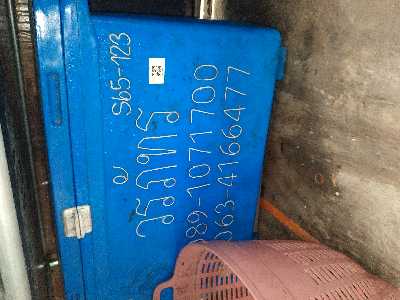 S65-123
วรภัทร
089-1071700
063-4166477